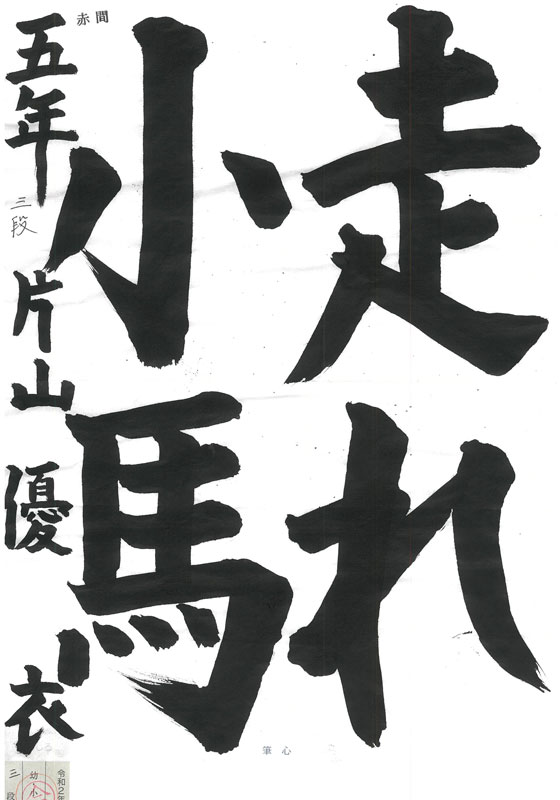 走れ
小馬
赤間
五年 三段 片山優衣
心筆
令和2年
幼小
三段